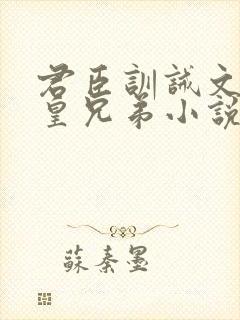 君臣訓誡文
皇兄弟小說
蘇秦墨